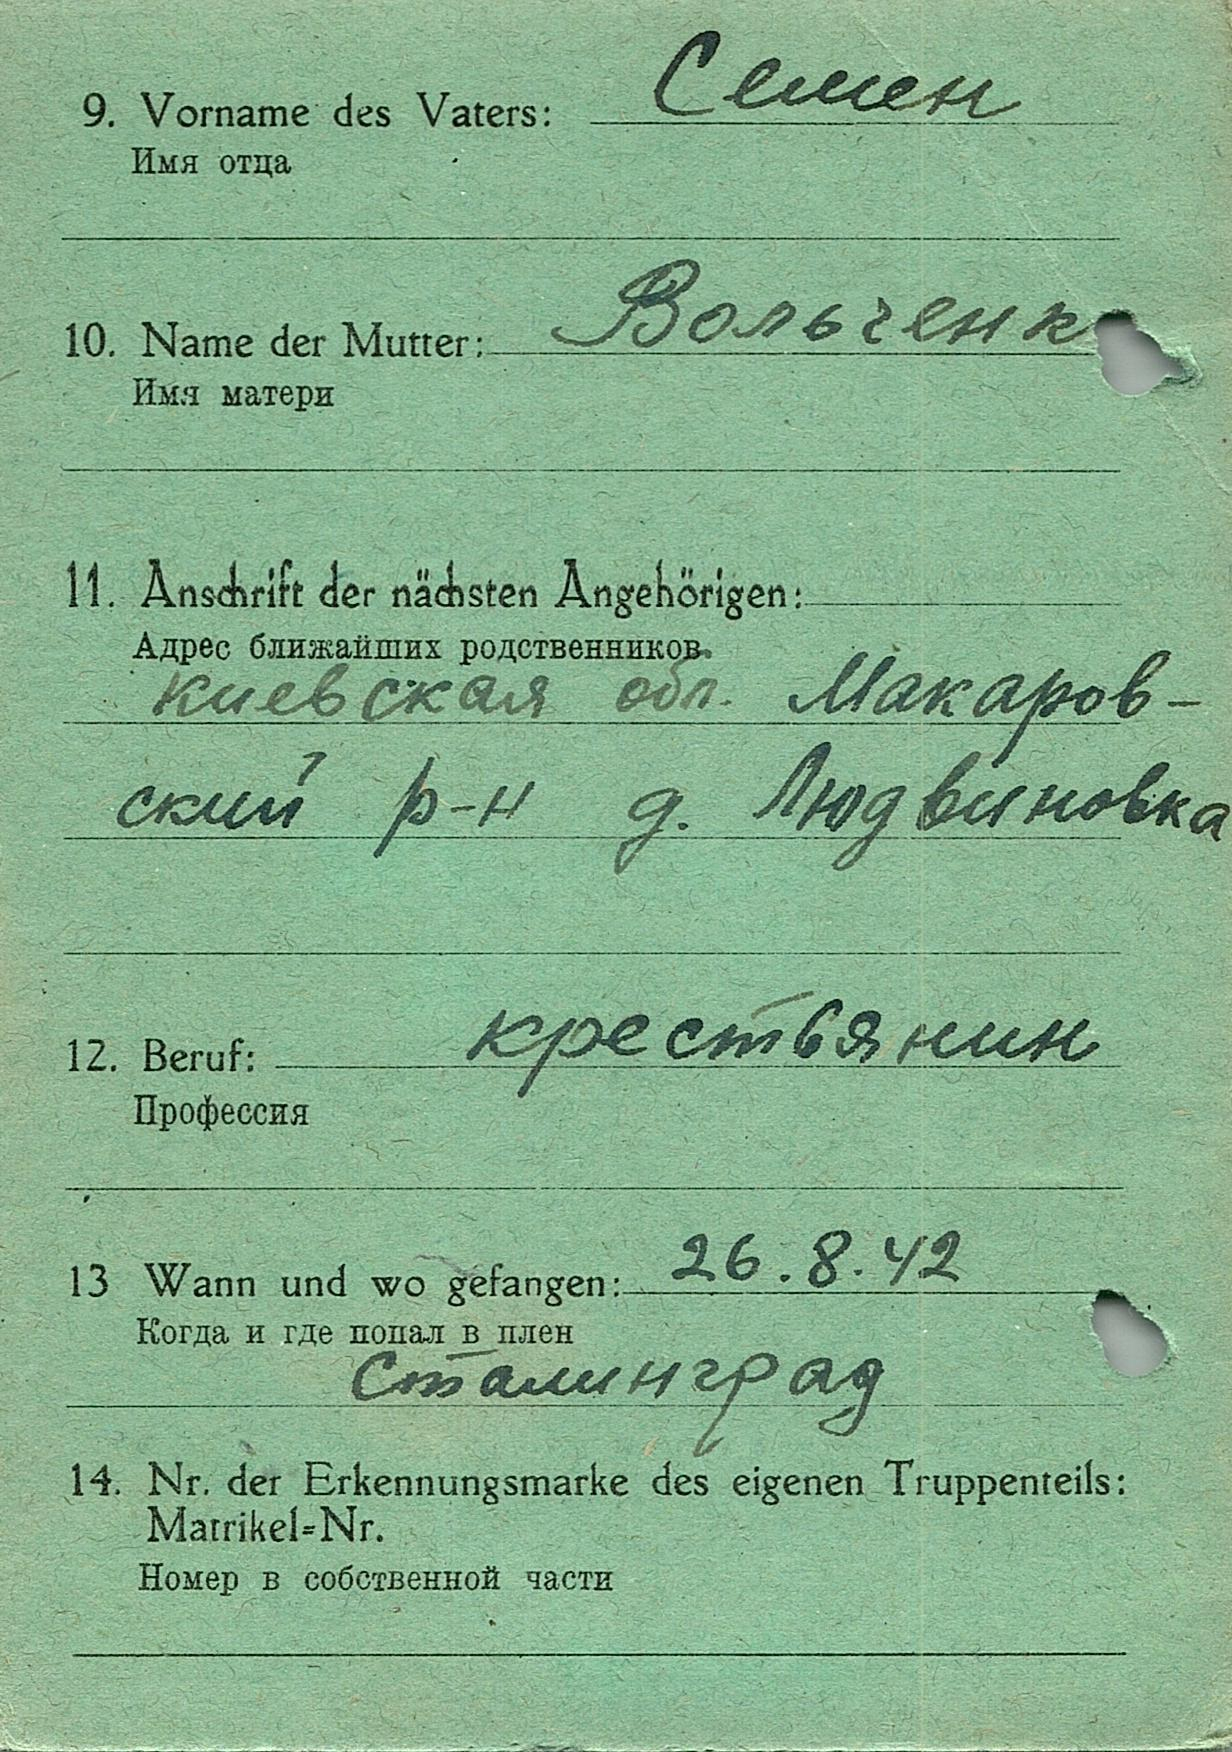 9. Vorname des Vaters: Семен
Имя отца
10. Name der Mutter: Вольченк
Имя матери
11. Anschrift der nächsten Angehörigen:
Адрес ближайших родственников.
Киевская обл. Макаров-
ский р-н д. Людвиновка
12. Beruf: крестьянин
Профессия
13 Wann und wo gefangen: 26.8.42
Когда и где попал в плен
Сталинград
14. Nr. der Erkennungsmarke des eigenen Truppenteils:
Matrikel=Nr.
Номер в собственной части